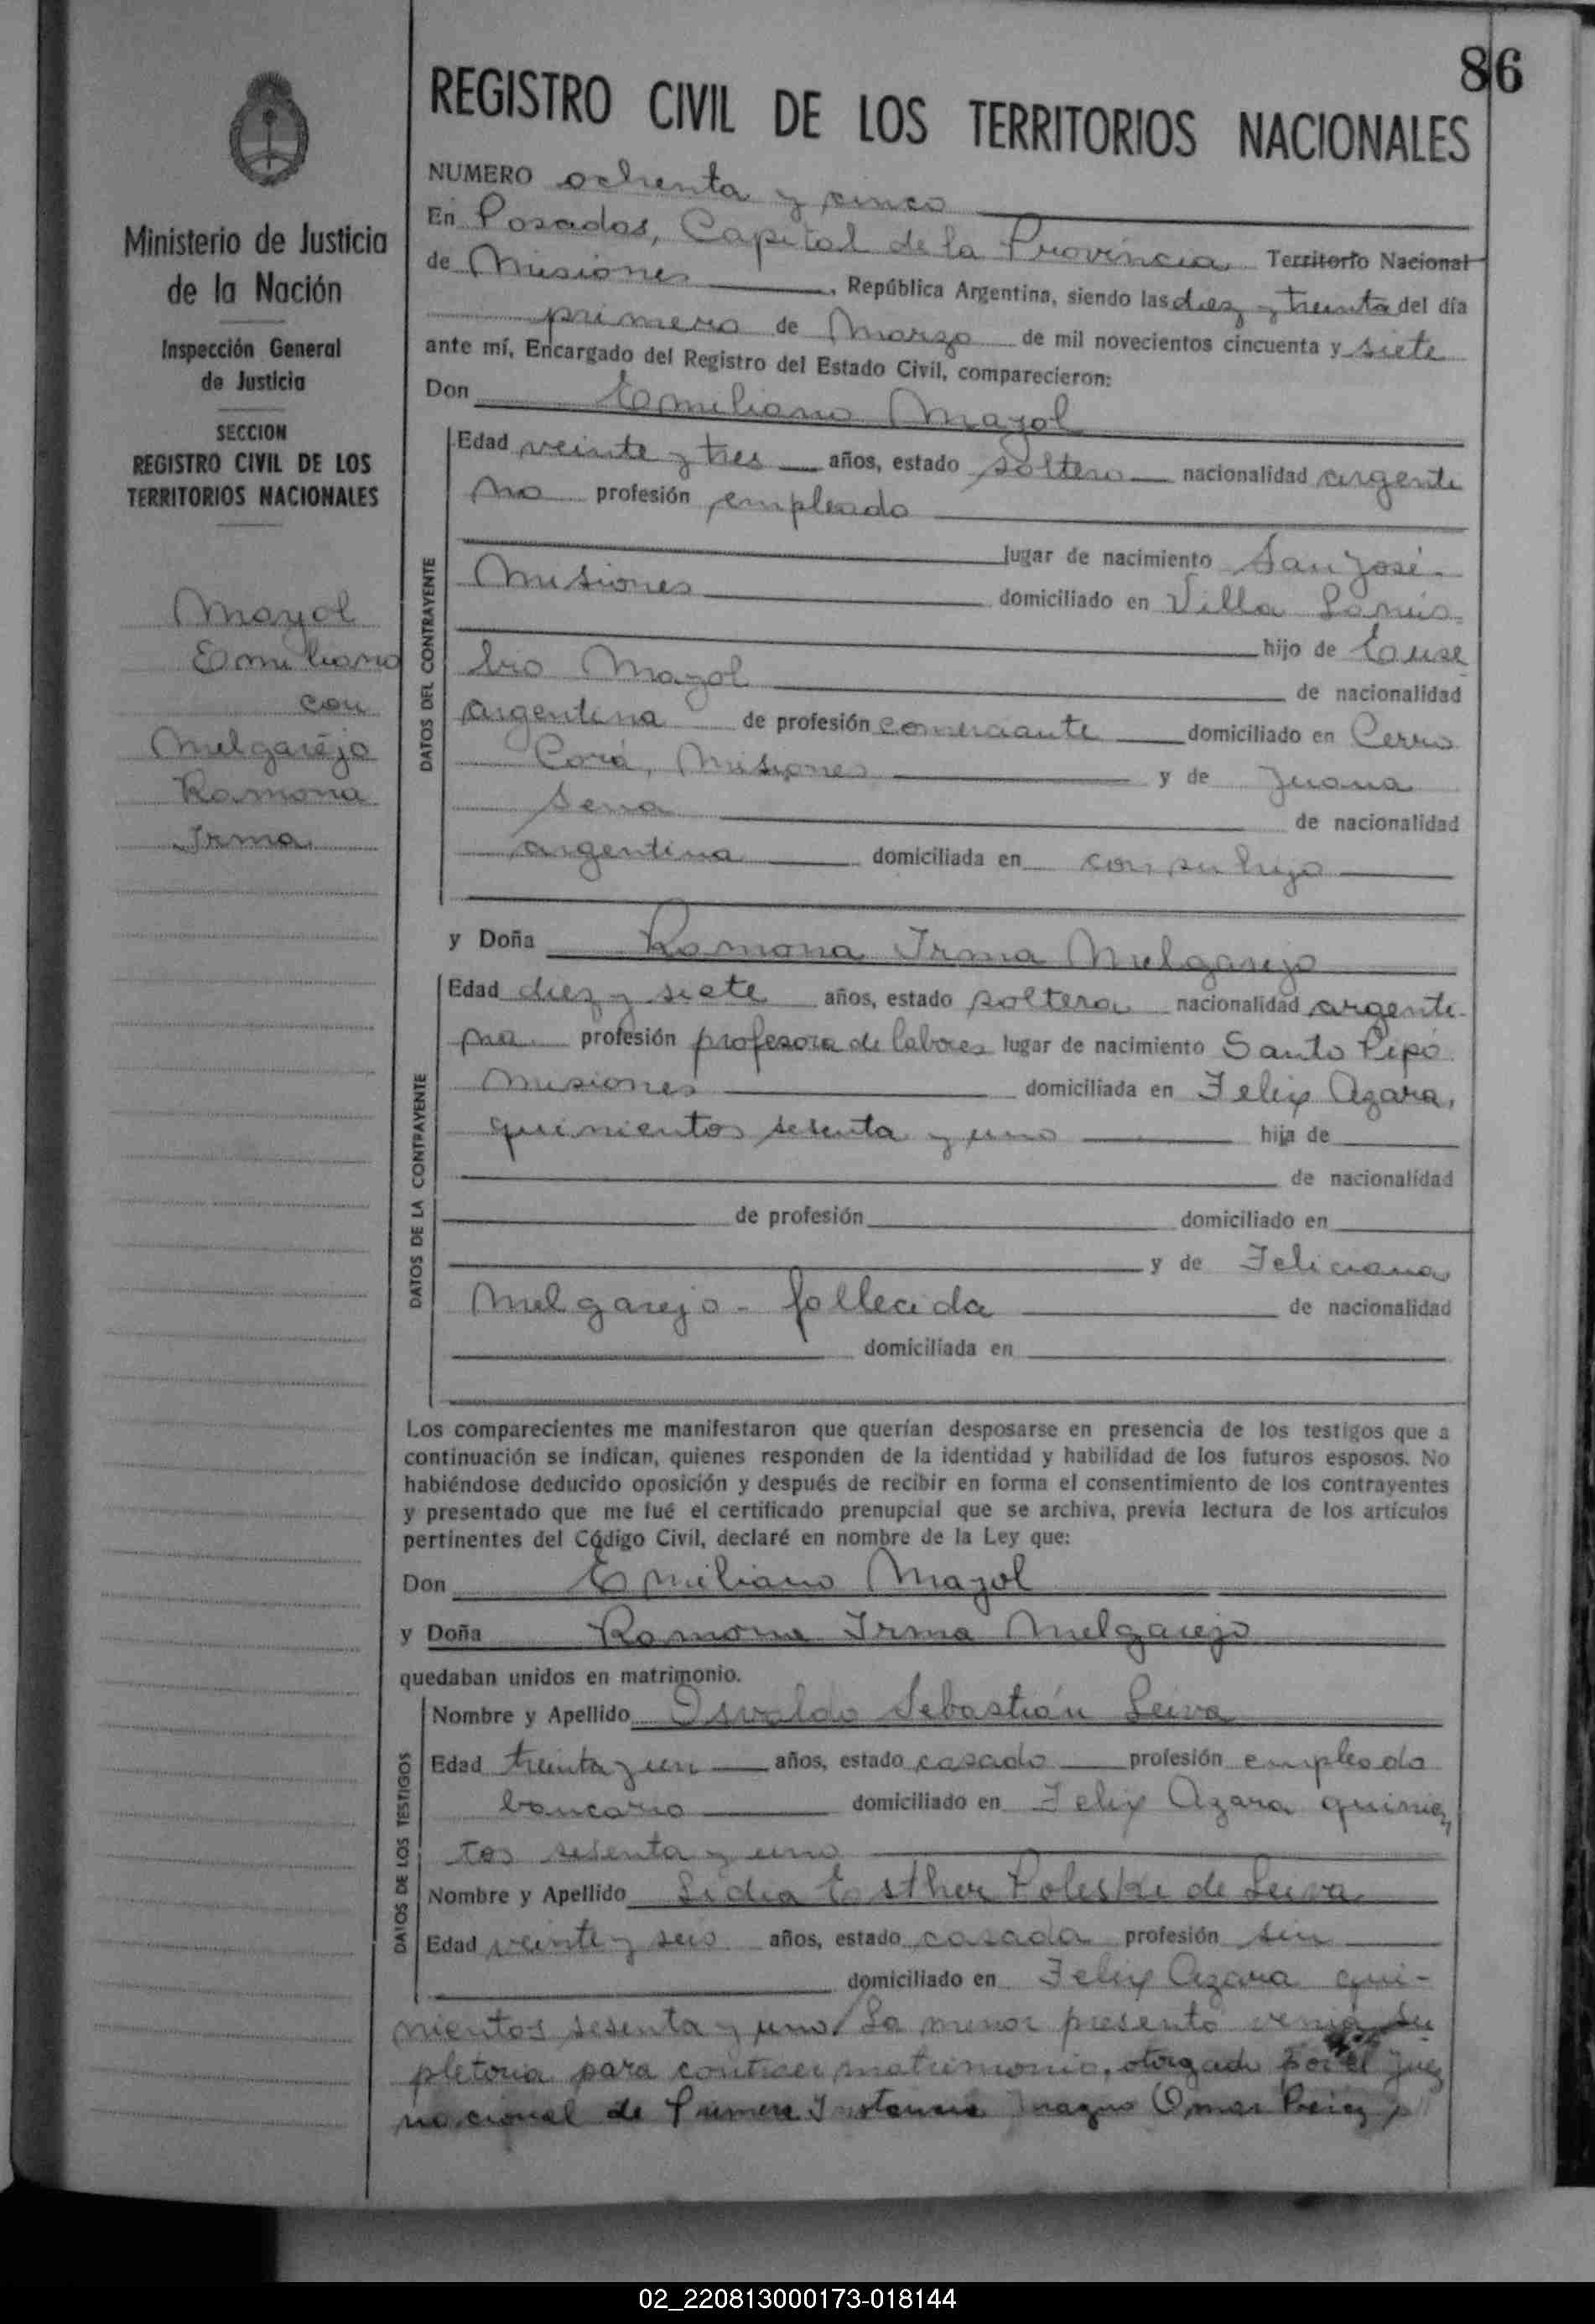 86
REGISTRO CIVIL DE LOS TERRITORIOS NACIONALES
Ministerio de Justicia
de la Nación
Inspección General
de Justicia
SECCION
REGISTRO CIVIL DE LOS
TERRITORIOS NACIONALES
Mayol
Emiliano
con
Melgarejo
Ramona
Irma
NUMERO ochenta y cinco
En Posadas, Capital de la Provincia Territorio Nacional
de Misiones, República Argentina, siendo las diez y treinta del día
primero de Marzo de mil novecientos cincuenta y siete
ante mí, Encargado del Registro del Estado Civil, comparecieron:
Don Emiliano Mayol
DATOS DEL CONTRAYENTE
Edad veinte y tres años, estado soltero nacionalidad argenti
no profesión empleado
lugar de nacimiento San José.
Misiones domiciliado en Villa Lanús
hijo de Euse
bio Mayol de nacionalidad
argentina de profesión comerciante domiciliado en Cerro
Corá, Misiones y de Juana
Sena de nacionalidad
argentina domiciliada en con su hijo
y Doña Ramona Irma Melgarejo
DATOS DE LA CONTRAYENTE
Edad diez y siete años, estado soltera nacionalidad argenti-
na profesión profesora de labores lugar de nacimiento Santo Pipó
Misiones domiciliada en Felix Azara,
quinientos sesenta y uno hija de
de nacionalidad
de profesión domiciliado en
y de Feliciana
Melgarejo - fallecida de nacionalidad
domiciliada en
Los comparecientes me manifestaron que querían desposarse en presencia de los testigos que a
continuación se indican, quienes responden de la identidad y habilidad de los futuros esposos. No
habiéndose deducido oposición y después de recibir en forma el consentimiento de los contrayentes
y presentado que me fué el certificado prenupcial que se archiva, previa lectura de los artículos
pertinentes del Código Civil, declaré en nombre de la Ley que:
Don Emiliano Mayol
y Doña Ramona Irma Melgarejo
quedaban unidos en matrimonio.
DATOS DE LOS TESTIGOS
Nombre y Apellido Osvaldo Sebastián Leiva
Edad treinta y un años, estado casado profesión empleado
bancario domiciliado en Felix Azara quinien
tos sesenta y uno
Nombre y Apellido Lidia Esther Poleski de Leiva
Edad veinte y seis años, estado casada profesión sin
domiciliado en Felix Azara qui-
nientos sesenta y uno. La menor presentó venia su
pletoria para contraer matrimonio, otorgado por el Juez
nacional de Primera Instancia Omar Perez
02_220813000173-018144